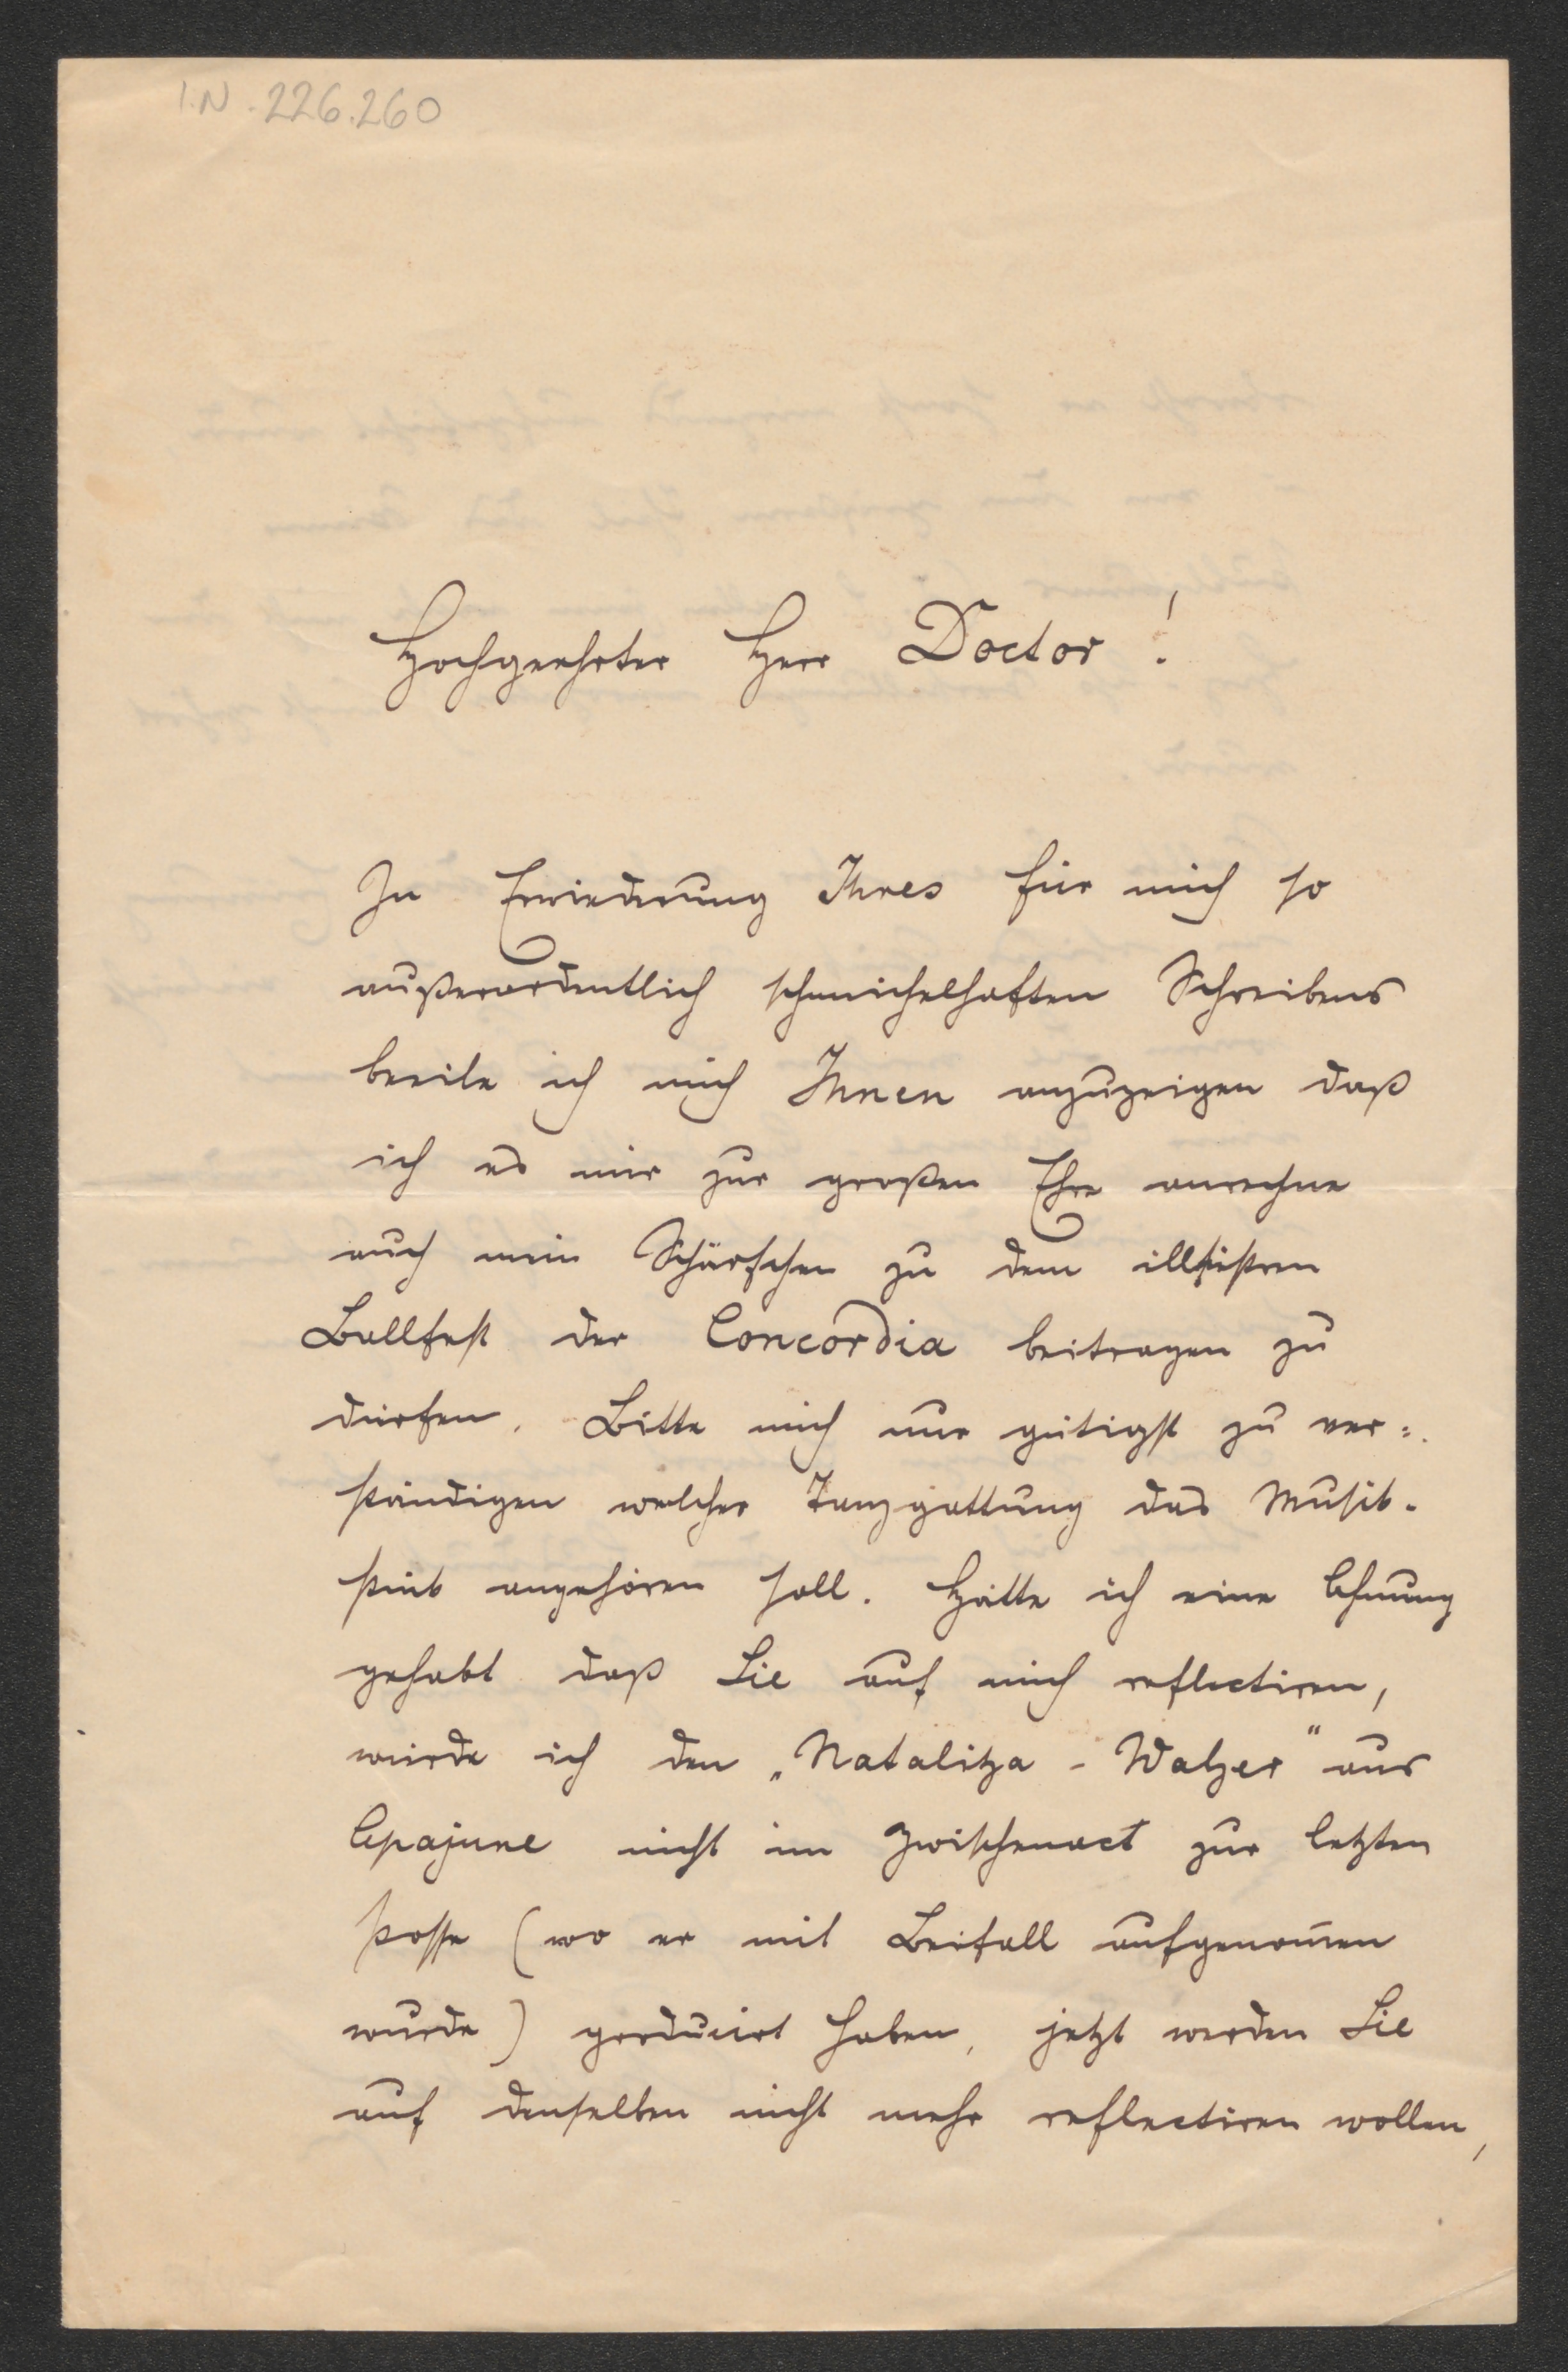 I.N. 226.260
Hochgeehrter Herr Doctor!
In Erwiederung Ihres für mich so
außerordentlich schmeichelhaften Schreibens
beeile ich mich Ihnen anzuzeigen daß
ich es mir zur großen Ehre anrechne
auch mein Schärfchen zu dem illustren
Ballfest der Concordia beitragen zu
dürfen. Bitte mich nur gütigst zu ver=
ständigen welcher Tanzgattung das Musik-
stück angehören soll. Hätte ich eine Ahnung
gehabt daß Sie auf mich reflectiren,
würde ich den „Natalitza - Walzer" aus
Apajune nicht im Zwischenact zur letzten
Posse (wo er mit Beifall aufgenom̅en
wurde) producirt haben, jetzt werden Sie
auf denselben nicht mehr reflectiren wollen,